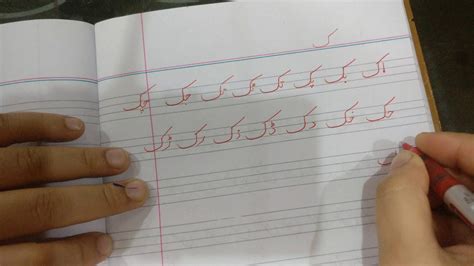 ک
اک بک پک تک ٹک ثک جک چک
حک خک دک ڈک ذک رک ڑک